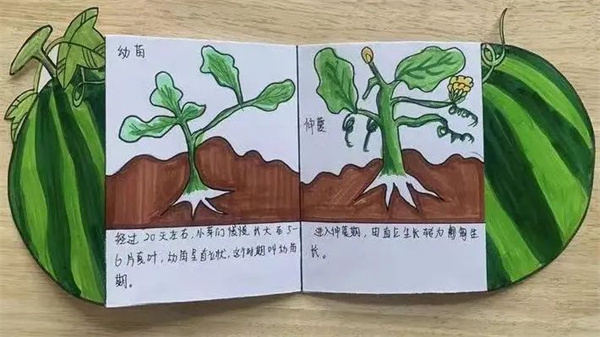 幼苗
经过20天左右，小芽们慢慢长大有5-
6片真叶，幼苗呈直立状，这个时期叫幼苗
期。
伸蔓
进入伸蔓期，由直立生长转为匍匐生
长。